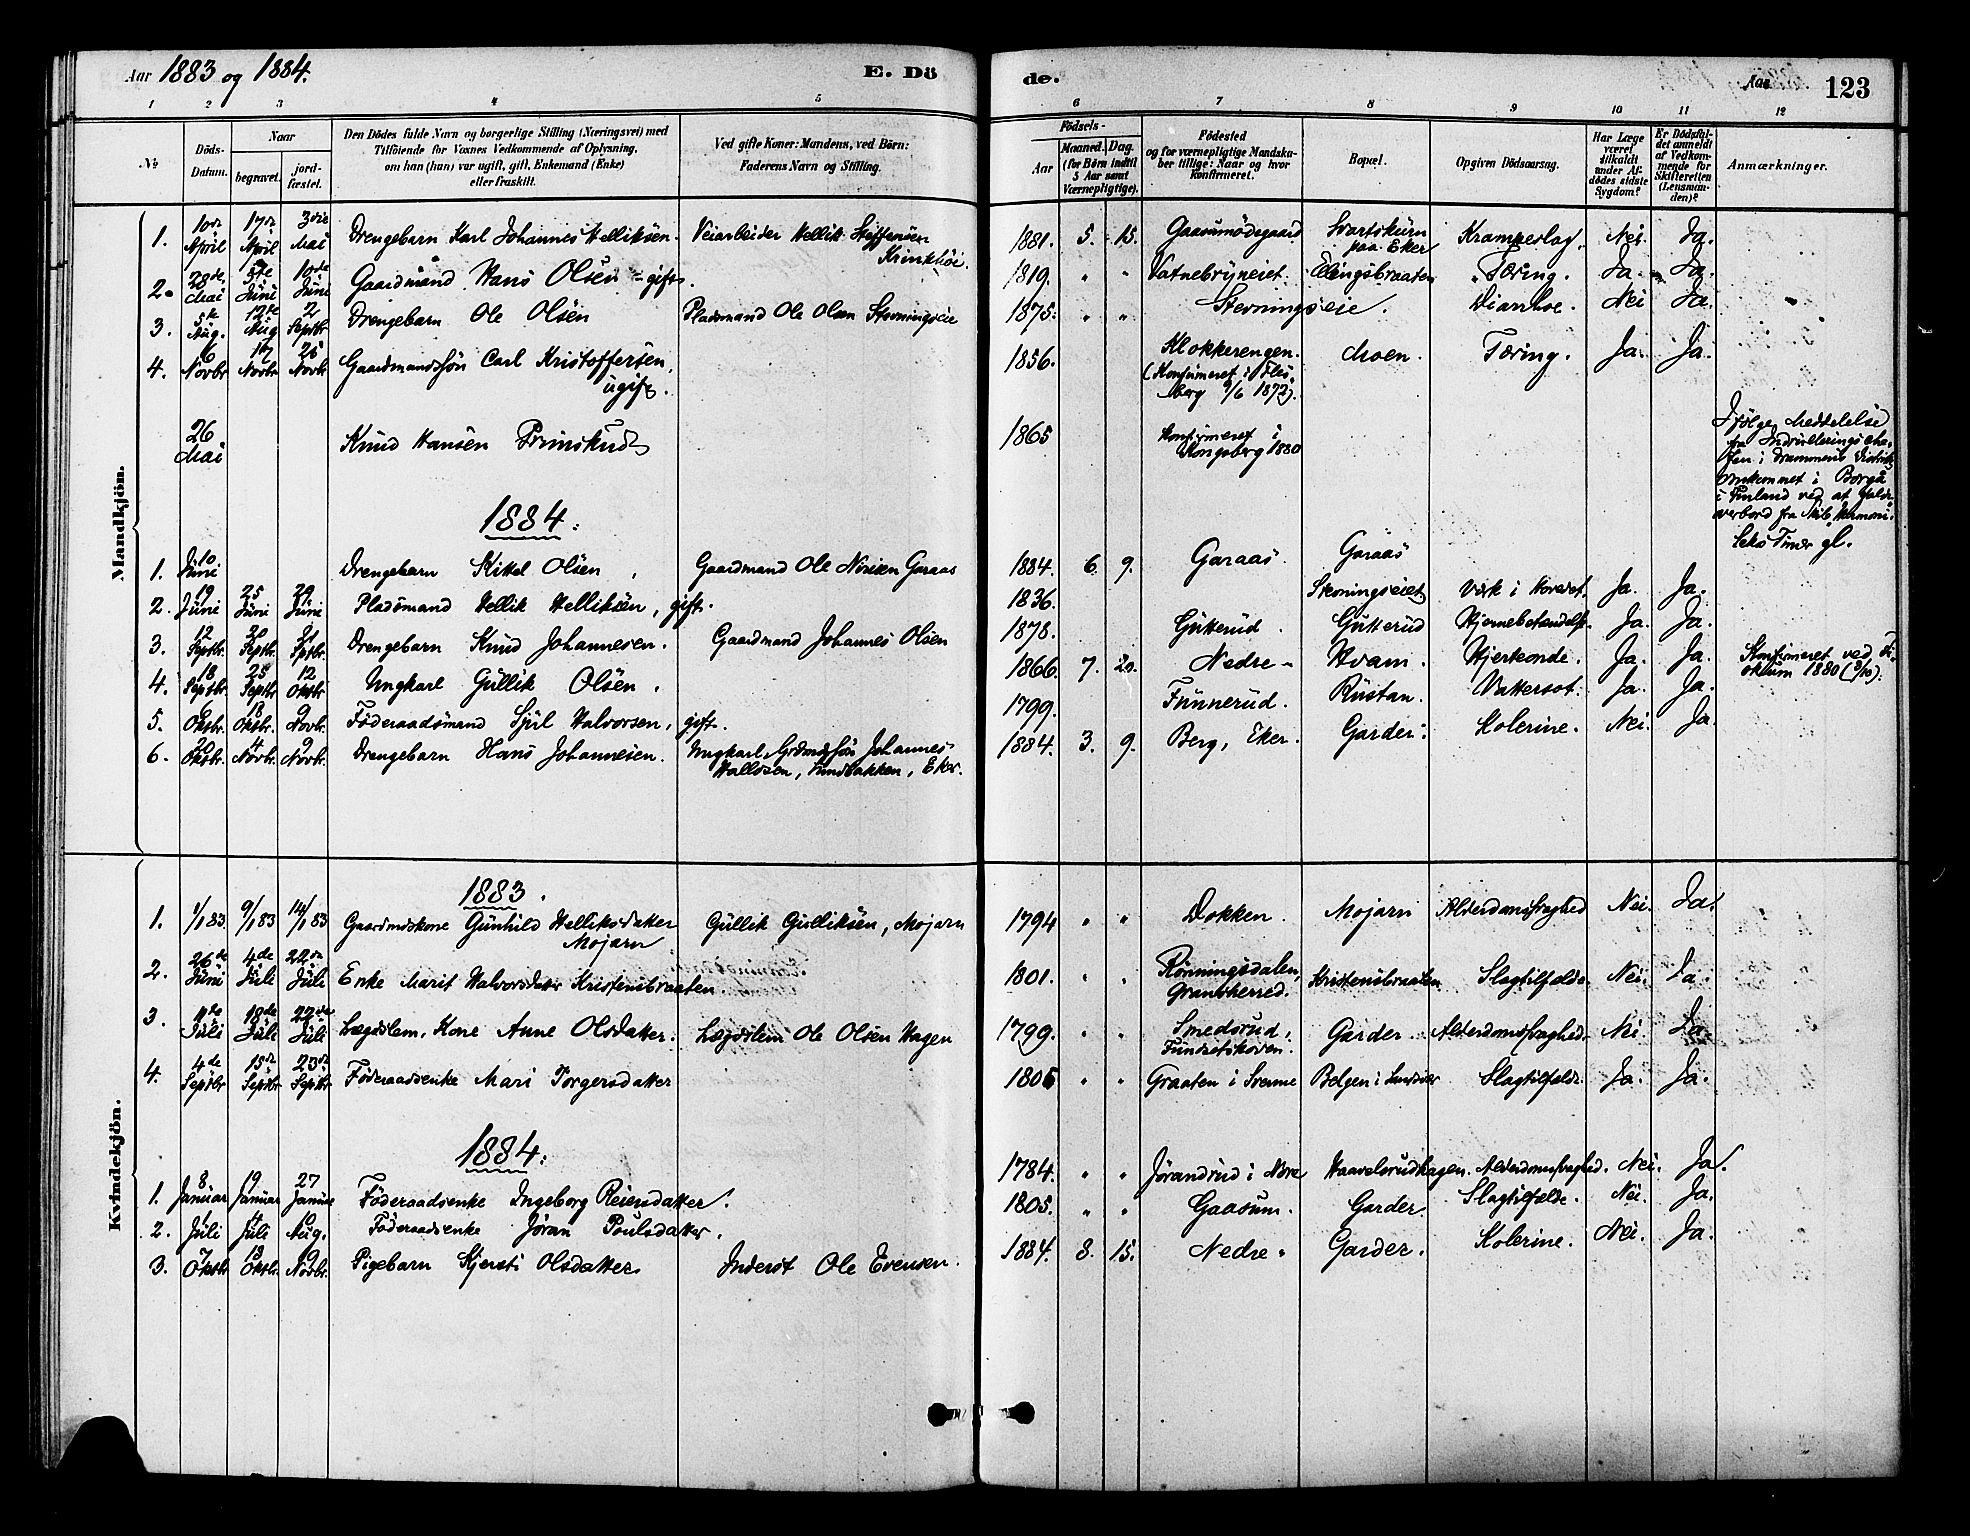 Aar 1883 og 1884.
E. Dö
de.
Aar
123
1 2 3 4 5 6 7 8 9 10 11 12
No
Döds-Datum.
Naar
begravet.
jord-fæstet.
Den Dödes fulde Navn og borgerlige Stilling (Næringsvei) med
Tilföiende for Voxnes Vedkommende af Oplysning,
om han (hun) var ugift, gift, Enkemand (Enke)
eller fraskilt.
Ved gifte Koner: Mandens, ved Börn:
Faderens Navn og Stilling.
Födsels-
Aar
Maaned. Dag.
(for Börn indtil
5 Aar samt
Værnepligtige).
Födested
og for værnepligtige Mandska-
ber tillige: Naar og hvor
konfirmeret.
Bopæl.
Opgiven Dödsaarsag.
Har Læge
været
tilkaldt
under Af-
dödes sidste
Sygdom?
Er Dödsfal-
det anmeldt
af Vedkom-
mende for
Skifteretten
(Lensman-
den)?
Anmærkninger.
Mandkjön.
1. 10de April 17de April 3die Mai Drengebarn Karl Johannes Helliksen. Veiarbeider Hellik Steffensen 1881. 5. 15. Gaasumödegaard Svartskurn paa Eker Krampeslag. Nei. Ja.
2. 28de Mai 5te Juni 10de Juni Gaardmand Hans Olsen - gift. 1819. " " Vatnebryneiet. Ellingsbraaten Tæring. Ja. Ja.
3. 5te Aug. 12te Aug 2 Septbr. Drengebarn Ole Olsen Pladsmand Ole Olsen Stevningseie 1875. " " Stevningseie. Diarrhoe. Nei Ja.
4. 6 Novbr 17 Novbr. 25 Novbr Gaardmandssön Carl Kristoffersen, ugift. 1856. Klokkerengen. (Konfirmeret i Flesberg 9/6 1872). Moen. Tæring. Ja. Ja.
26 Mai Knud Hansen Prinskud 1865 Konfirmeret i Kongsberg 1880
Ifölge Meddelelse
fra Indrulleringsche-
fen i Drammens Distrikt
omkommet i Borgå
i Finland ved at falde
overbord fra Skib "Harmoni".
1884.
1. 10 Juni Drengebarn Kittel Olsen Gaardmand Ole Garaas 1884. 6. 9. Garaas. Garaas
2. 19 Juni 25 Juni 29 Juni Pladsmand Hellik Helliksen, gift. 1836. Stevningseiet Værk i Hovedet. Ja. Ja.
3. 12 Septbr. 20 Septbr. 21 Septbr. Drengebarn Knud Johannesen. Gaardmand Johannes Olsen 1878. Gutterud. Gutterud Hjernebetændelse. Ja. Ja.
4. 18 Septbr. 25 Septbr 12 Oktbr. Ungkarl Gullik Olsen. 1866. 7. 20. Nedre - Hvam. Hjerteonde. Ja. Ja. Konfirmeret ved 1880 (3/10).
5. 6 Oktbr. 13 Oktbr. 9 Novbr. Föderaadsmand Sjul Halvorsen, gift. 1799. Funnerud. Rustan. Vattersot. Ja. Ja.
6. 20 Oktbr. 4 Novbr. 9 Novbr. Drengebarn Hans Johannesen. Ungkarl, Grdmdssön Johannes Eker. 1884. 3. 9. Berg, Eker. Garder. Kolerine. Nei. Ja.
Kvindekjön.
1883.
1. 1/1 83. 9/1 83 14/1 83 Gaardmdskone Gunhild Helliksdatter Mojarn Gullik Gulliksen, Mojarn 1794 " " Dokken. Mojarn Alderdomssvaghed Nei. Ja.
2. 26de Juni 4de Juli 22de Juli Enke Marit Halvorsdatter Kristensbraaten 1801. " " Rönningsdalen, Gransherred. Kristensbraaten Slagtilfælde. Nei. Ja.
3. 11te Juli 18de Juli 22de Juli Lægdslem, Kone Anne Olsdatter. Lægdslem Ole Olsen Hagen 1799. " " Smedsrud, Funnetskoven. Garder. Alderdomssvaghed. Nei. Ja.
4. 4de Septbr 15de Septbr 23de Septbr. Föderaadsenke Mari Torgersdatter 1806 " " Graaten i Svenne Belgen i Lundsvær Slagtilfælde. Ja. Ja.
1884.
1. 8 Januar 19 Januar 27 Januar Föderaadsenke Ingeborg Reiersdatter. 1784. " " Jörandrud i Nore Haavelsrudhagen. Alderdomssvaghed. Nei. Ja.
2. 1 Juli 4 Juli 10 Aug. Föderaadsenke Jöran Poulsdatter. 1805. " " Gaasum. Garder. Slagtilfælde. Nei. Ja.
3. 7 Oktbr. 13 Oktbr. 9 Novbr. Pigebarn Kjersti Olsdatter Inderst Ole Evensen. 1884. 8. 15. Nedre " Garder. Kolerine. Nei. Ja.